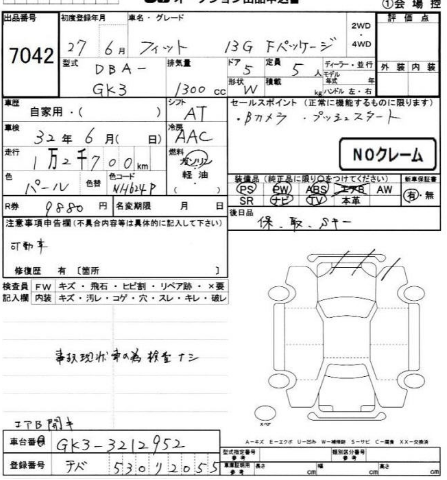 ①会場控
出品番号 初度登録年月 車名・グレード 評価点
7042 27年 6月 フィット 13G Fパッケージ 2WD・4WD
型式 排気量 ドア 定員 ディーラー・並行 外装 内装
DBA-GK3 1300cc 5 5人 モデル年式 年
形状 W 積載 kg ハンドル 左・右
車歴 自家用・( ) シフト AT
セールスポイント(正常に機能するものに限ります)
・Bカメラ ・プッシュスタート
車検 32年 6月( 日) 冷房 AAC
NOクレーム
走行 1万2千700km 燃料 ガソリン 軽油・( )
色 パール 色替 色コード NH624P
装備品(純正品に限り○をつけてください) 新車保証書
PS PW ABS エアB AW 有・無
SR ナビ TV 本革
R券 9880円 名変期限 月 日
後日品
保、取、Sキー
注意事項申告欄(不具合内容等は具体的に記入して下さい)
可動車
修復歴 有〔箇所 〕
検査員記入欄 FW キズ・飛石・ヒビ割・リペア跡・×要
内装 キズ・汚レ・コゲ・穴・スレ・キレ・破レ
事故現状車の為検査ナシ
エアB開キ
車台番号 GK3-3212952
A-キズ E-エクボ U-凹み W-補修跡 S-サビ C-腐食 XX-交換済
型式指定番号 参考 類別区分番号 参考
登録番号 530 ソ 2055
車庫証明用 参考 長さ cm 幅 cm 高さ cm